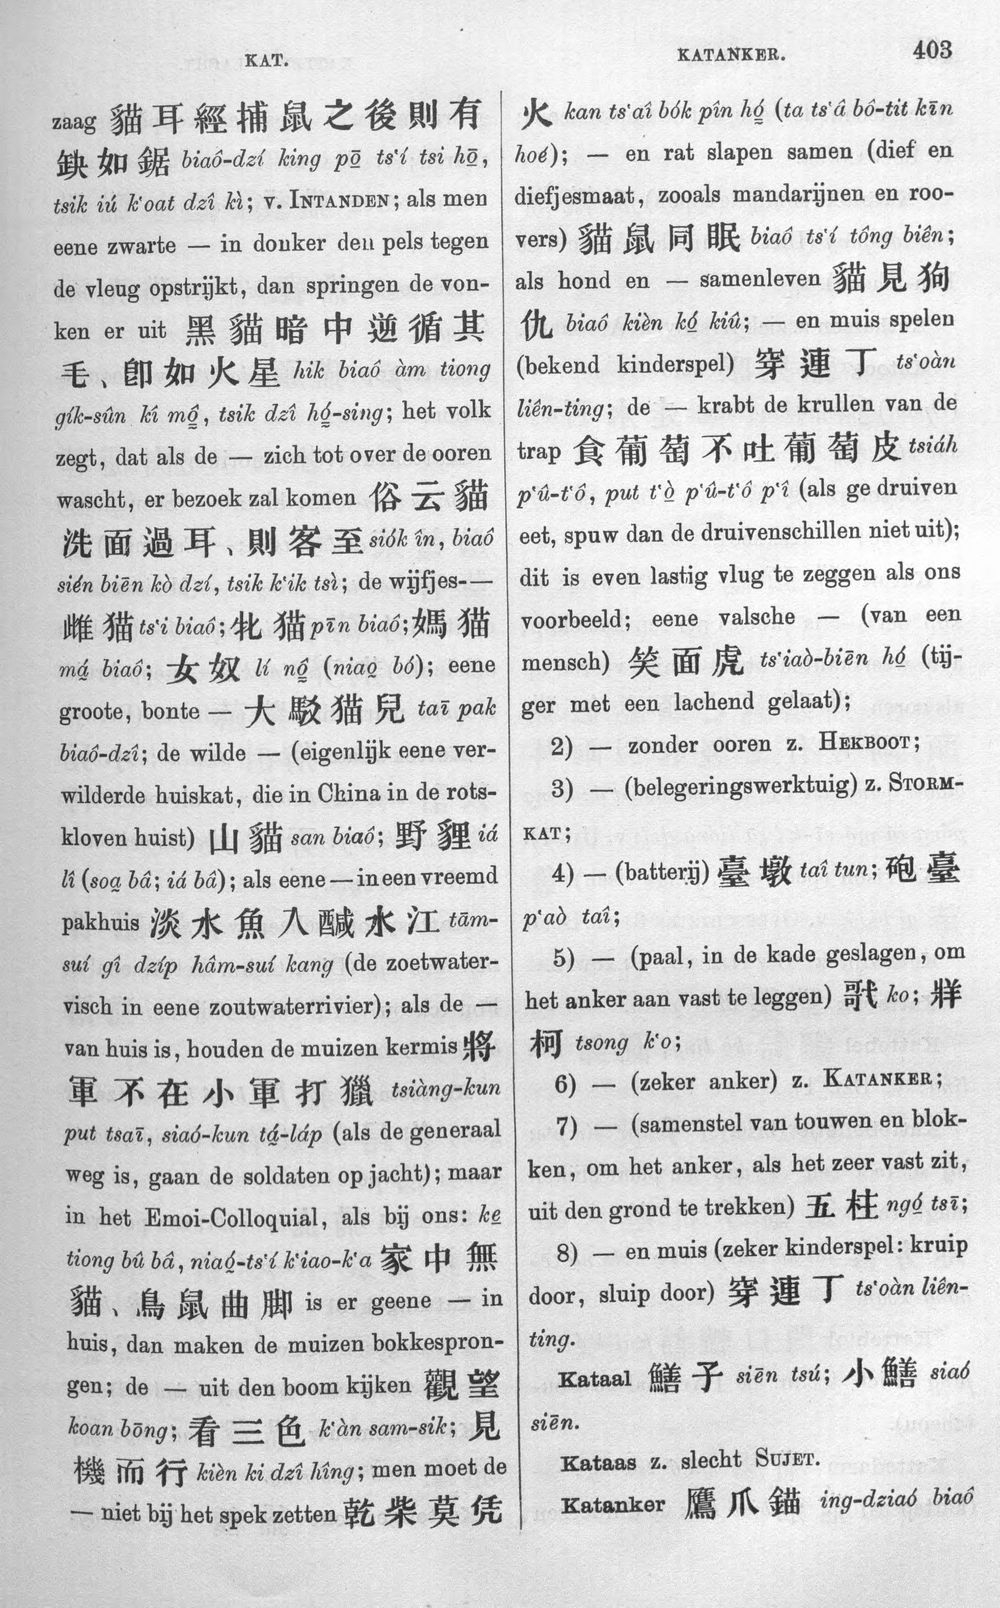 KAT.
KATANKER.
403
zaag 貓耳經捕鼠之後則有
缺如鋸 biaô-dzí king pō͘ ts‘í tsi hō͘,
tsik iú k‘oat dzî kì; v. INTANDEN; als men
eene zwarte — in donker den pels tegen
de vleug opstrijkt, dan springen de von-
ken er uit 黑貓暗中逆循其
毛、卽如火星 hik biaô àm tiong
gík-sûn kî mô, tsik dzî hó-sing; het volk
zegt, dat als de — zich tot over de ooren
wascht, er bezoek zal komen 俗云貓
洗面過耳、則客至 siók în, biaô
sién biēn kò dzí, tsik k‘ik tsì; de wijfjes-—
雌猫 ts‘i biaô; 牝猫 pīn biaô; 媽猫
má biaô; 女奴 lí nô (niao bó); eene
groote, bonte — 大駁猫兒 taī pak
biaô-dzî; de wilde — (eigenlijk eene ver-
wilderde huiskat, die in China in de rots-
kloven huist) 山貓 san biaô; 野貍 iá
lî (soa bâ; iá bâ); als eene — in een vreemd
pakhuis 淡水魚入醎水江 tām-
suí gî dzíp hâm-suí kang (de zoetwater-
visch in eene zoutwaterrivier); als de —
van huis is, houden de muizen kermis 將
軍不在小軍打獵 tsiàng-kun
put tsaī, siaó-kun tá-láp (als de generaal
weg is, gaan de soldaten op jacht); maar
in het Emoi-Colloquial, als bij ons: ke
tiong bû bâ, niaó-ts‘í k‘iao-k‘a 家中無
貓、鳥鼠曲脚 is er geene — in
huis, dan maken de muizen bokkespron-
gen; de — uit den boom kijken 觀望
koan bōng; 看三色 k‘àn sam-sik; 見
機而行 kièn ki dzî hîng; men moet de
— niet bij het spek zetten 乾柴莫凭
火 kan ts‘aî bók pîn hó (ta ts‘â bô-tit kīn
hoé); — en rat slapen samen (dief en
diefjesmaat, zooals mandarijnen en roo-
vers) 貓鼠同眠 biaô ts‘í tông biên;
als hond en — samenleven 貓見狗
仇 biaô kièn kó kiû; — en muis spelen
(bekend kinderspel) 穿連丁 ts‘oàn
liên-ting; de — krabt de krullen van de
trap 食葡萄不吐葡萄皮 tsiáh
p‘û-t‘ô, put t‘ò p‘û-t‘ô p‘î (als ge druiven
eet, spuw dan de druivenschillen niet uit);
dit is even lastig vlug te zeggen als ons
voorbeeld; eene valsche — (van een
mensch) 笑面虎 ts‘iaò-biēn hó (tij-
ger met een lachend gelaat);
2) — zonder ooren z. HEKBOOT;
3) — (belegeringswerktuig) z. STORM-
KAT;
4) — (batterij) 臺墩 taî tun; 砲臺
p‘aò taî;
5) — (paal, in de kade geslagen, om
het anker aan vast te leggen) 戨 ko; 牂
柯 tsong k‘o;
6) — (zeker anker) z. KATANKER;
7) — (samenstel van touwen en blok-
ken, om het anker, als het zeer vast zit,
uit den grond te trekken) 五柱 ngó tsī;
8) — en muis (zeker kinderspel: kruip
door, sluip door) 穿連丁 ts‘oàn liên-
ting.
Kataal 鱔子 siēn tsú; 小鱔 siaó
siēn.
Kataas z. slecht SUJET.
Katanker 鷹爪錨 ing-dziaó biaô